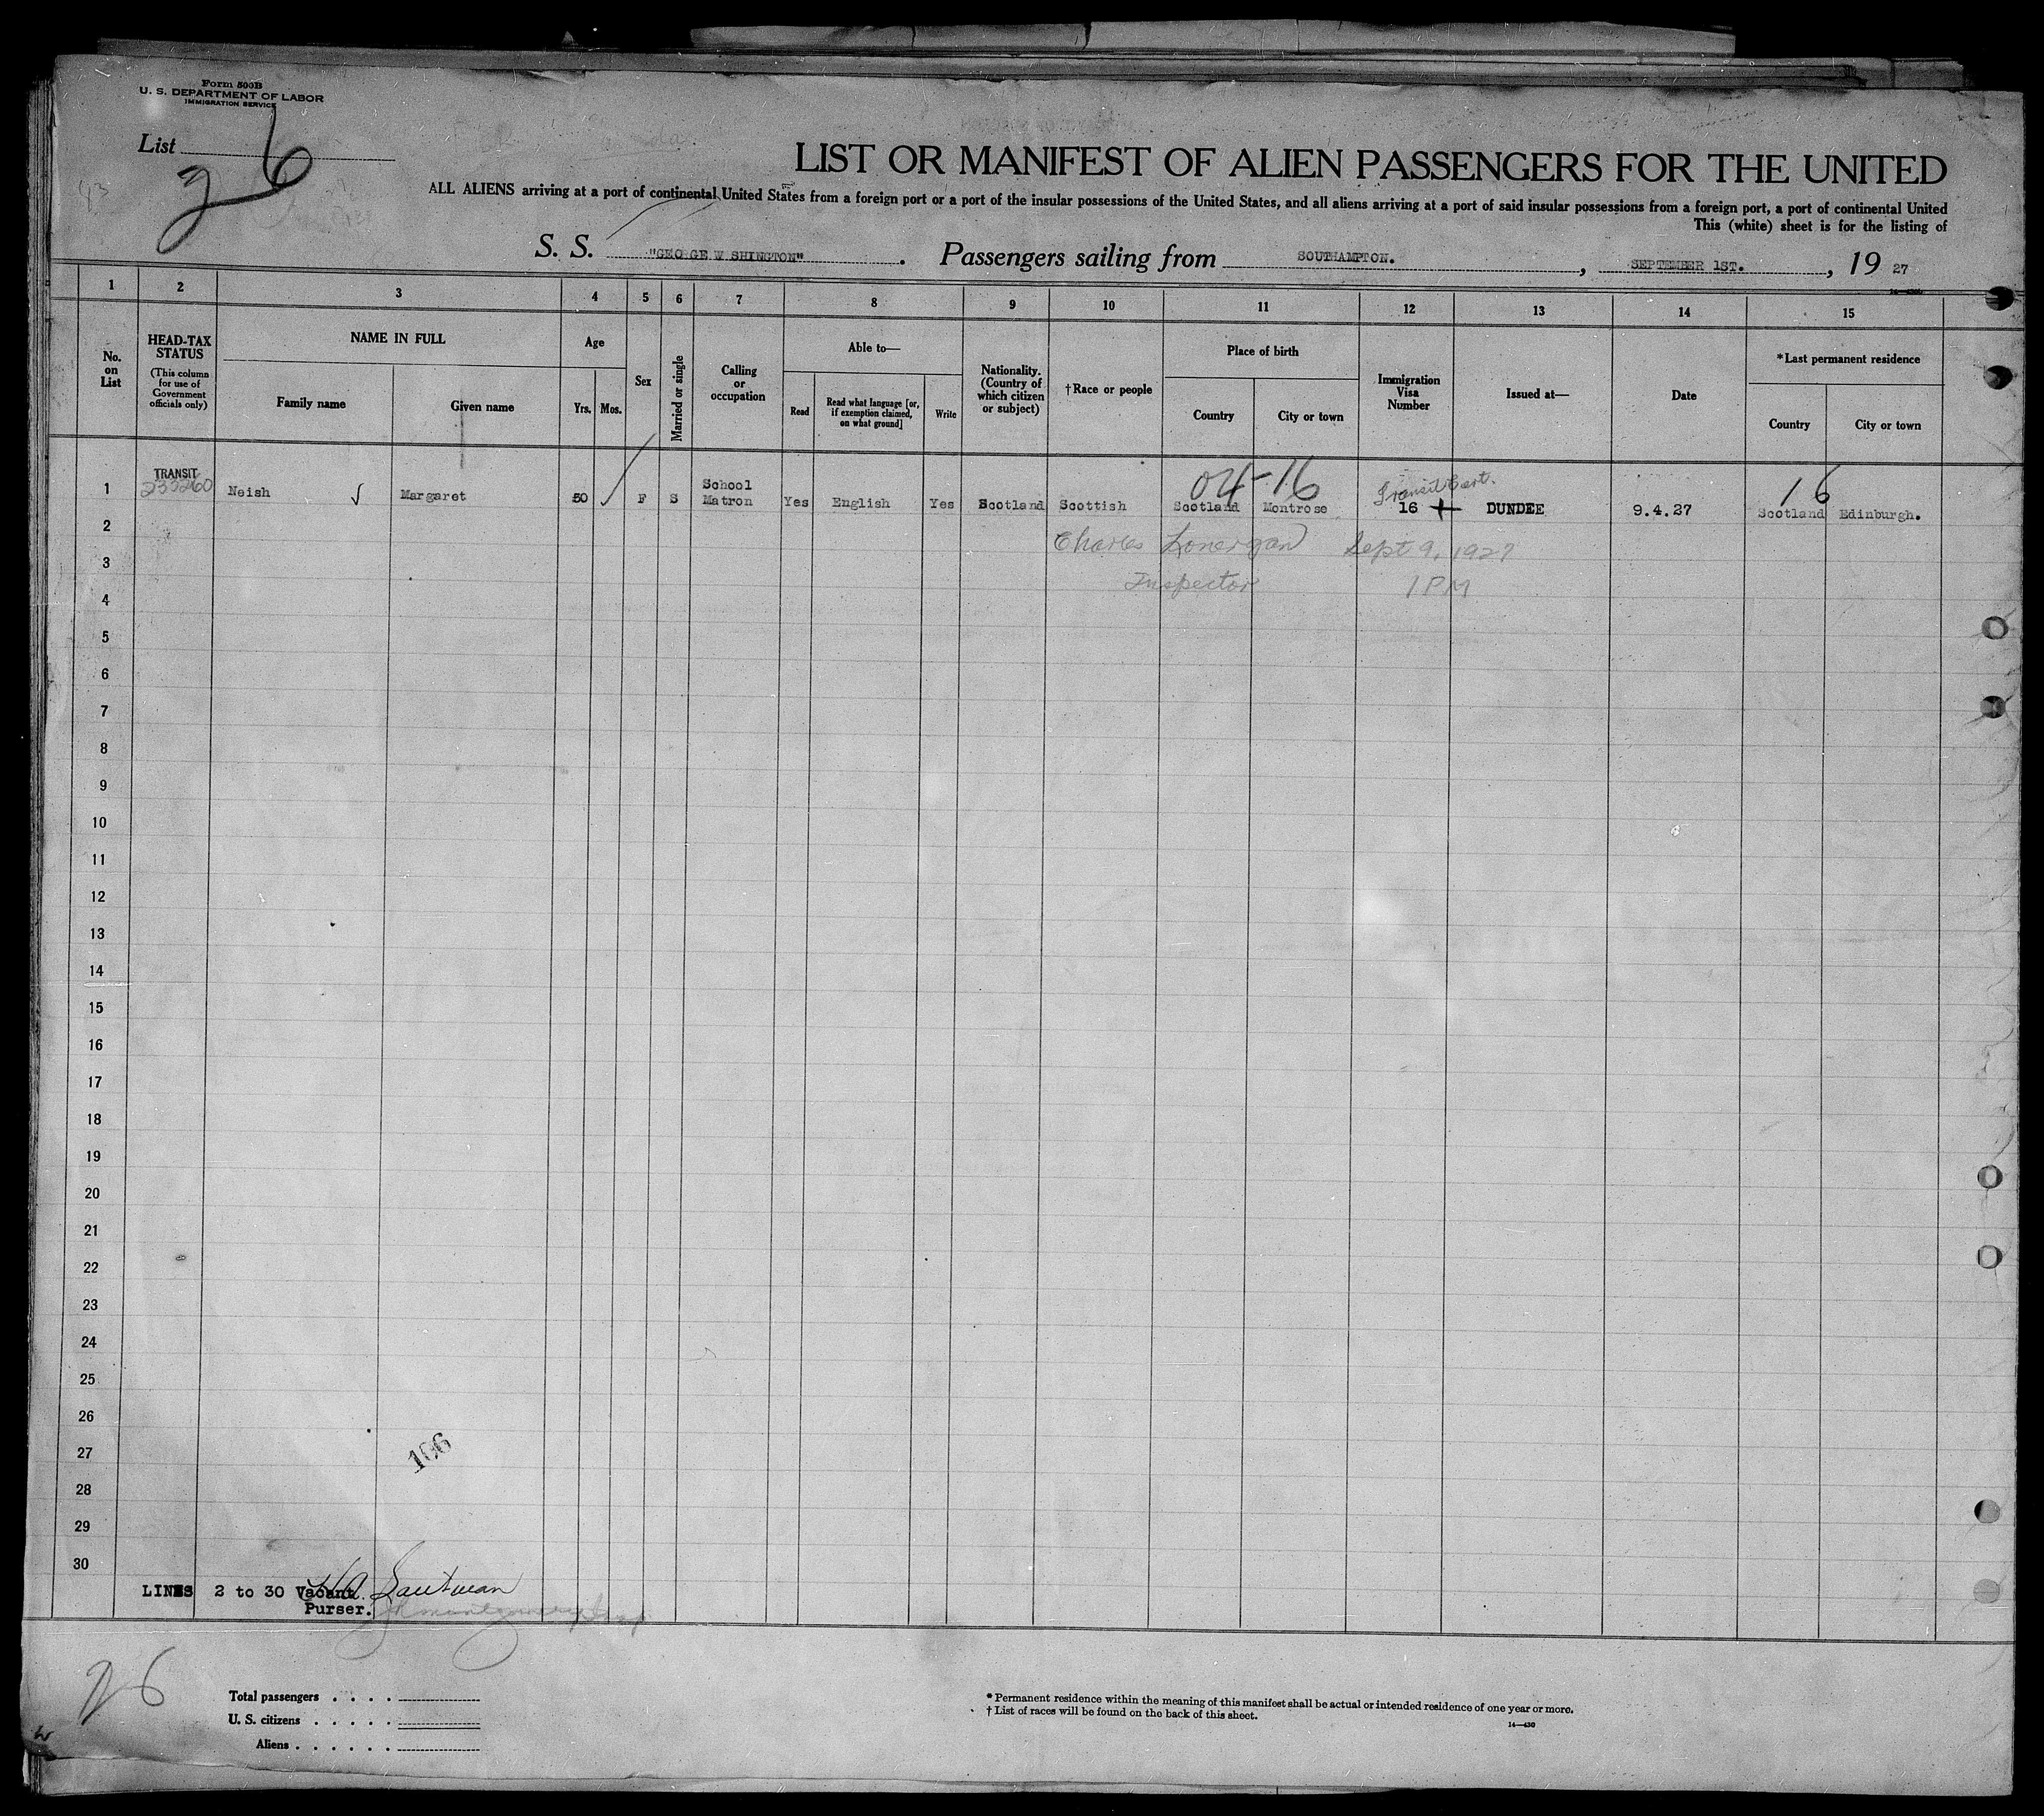 Form 500B
U. S. DEPARTMENT OF LABOR
IMMIGRATION SERVICE
List
26
LIST OR MANIFEST OF ALIEN PASSENGERS FOR THE UNITED
ALL ALIENS arriving at a port of continental United States from a foreign port or a port of the insular possessions of the United States, and all aliens arriving at a port of said insular possessions from a foreign port, a port of continental United
This (white) sheet is for the listing of
S. S. "GEORGE W SHINGTON" . Passengers sailing from SOUTHAMPTON. , SEPTEMBER 1ST. , 19 27
1 2 3 4 5 6 7 8 9 10 11 12 13 14 15
No. on List
HEAD-TAX STATUS
(This column for use of Government officials only)
NAME IN FULL
Family name
Given name
Age
Yrs.
Mos.
Sex
Married or single
Calling or occupation
Able to—
Read
Read what language [or, if exemption claimed, on what ground]
Write
Nationality. (Country of which citizen or subject)
†Race or people
Place of birth
Country
City or town
Immigration Visa Number
Issued at—
Date
*Last permanent residence
Country
City or town
TRANSIT
04-16 Transit Cert. 16
1 235260 Neish Margaret 50 F S School Matron Yes English Yes Scotland Scottish Scotland Montrose 16 DUNDEE 9.4.27 Scotland Edinburgh.
2
Charles Lonergan Sept 9, 1927
3
Inspector 1 PM
4
5
6
7
8
9
10
11
12
13
14
15
16
17
18
19
20
21
22
23
24
25
26
27
106
28
29
30
LINES 2 to 30 Vacant
Purser.
26
Total passengers . . . .
U. S. citizens . . . . .
Aliens . . . . . .
* Permanent residence within the meaning of this manifest shall be actual or intended residence of one year or more.
† List of races will be found on the back of this sheet.
14—430